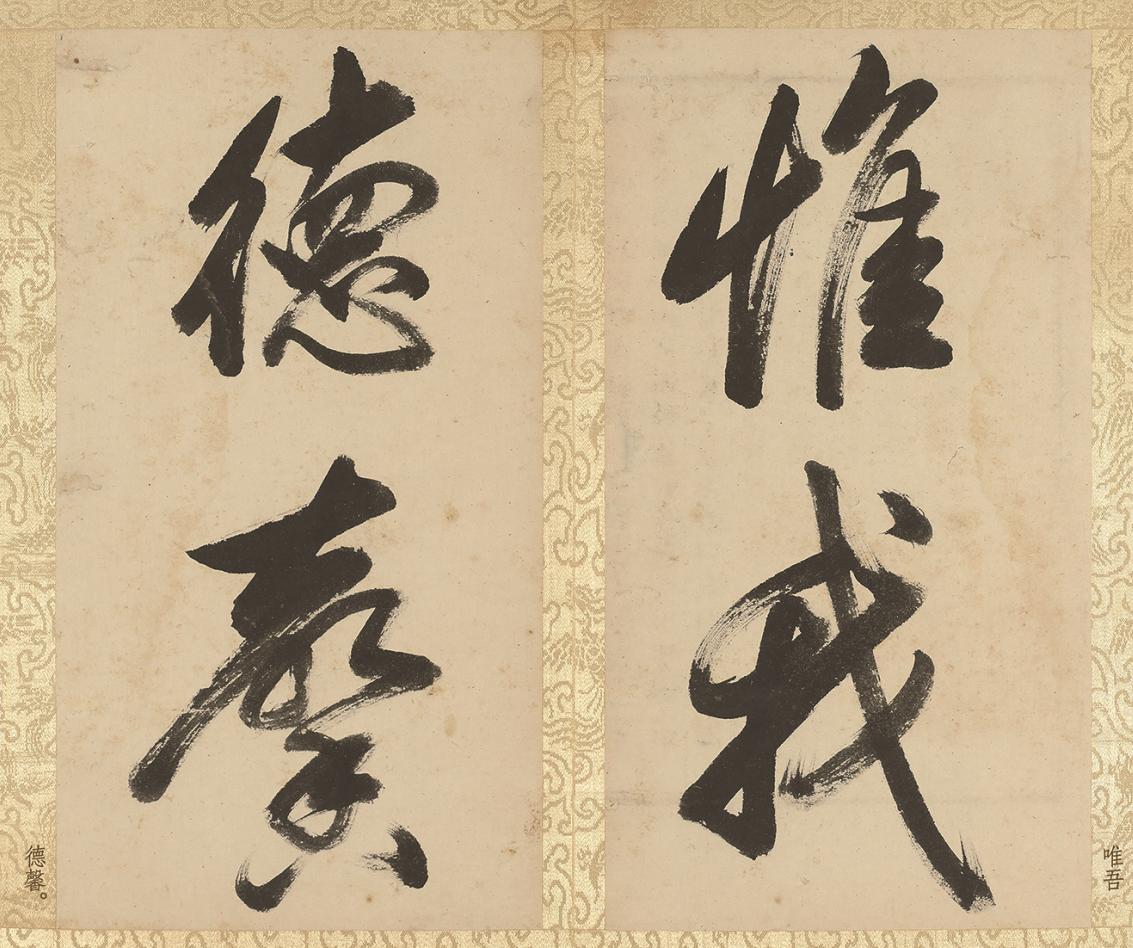 唯吾
惟我
德馨
德馨。